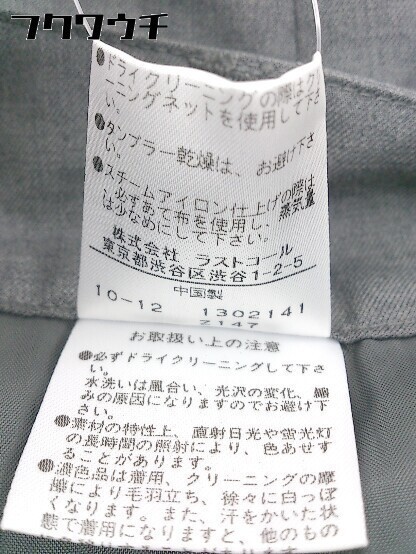 フクワウチ
●ドライクリーニングの際はクリ
ーニングネットを使用して下さ
い。
●タンブラー乾燥は、お避け下さ
い。
●スチームアイロン仕上げの際は
必ずあて布を使用し、蒸気量
は少なめにして下さい。
株式会社 ラストコール
東京都渋谷区渋谷1-2-5
中国製
10-12 1302141
7147
お取扱い上の注意
●必ずドライクリーニングして下さ
い。
水洗いは風合い、光沢の変化、縮
みの原因になりますのでお避け下
さい。
●素材の特性上、直射日光や蛍光灯
の長時間の照射により、色あせす
ることがあります。
●濃色品は着用、クリーニングの摩
擦により毛羽立ち、徐々に白っぽ
くなります。また、汗をかいた状
態で着用になりますと、他のもの